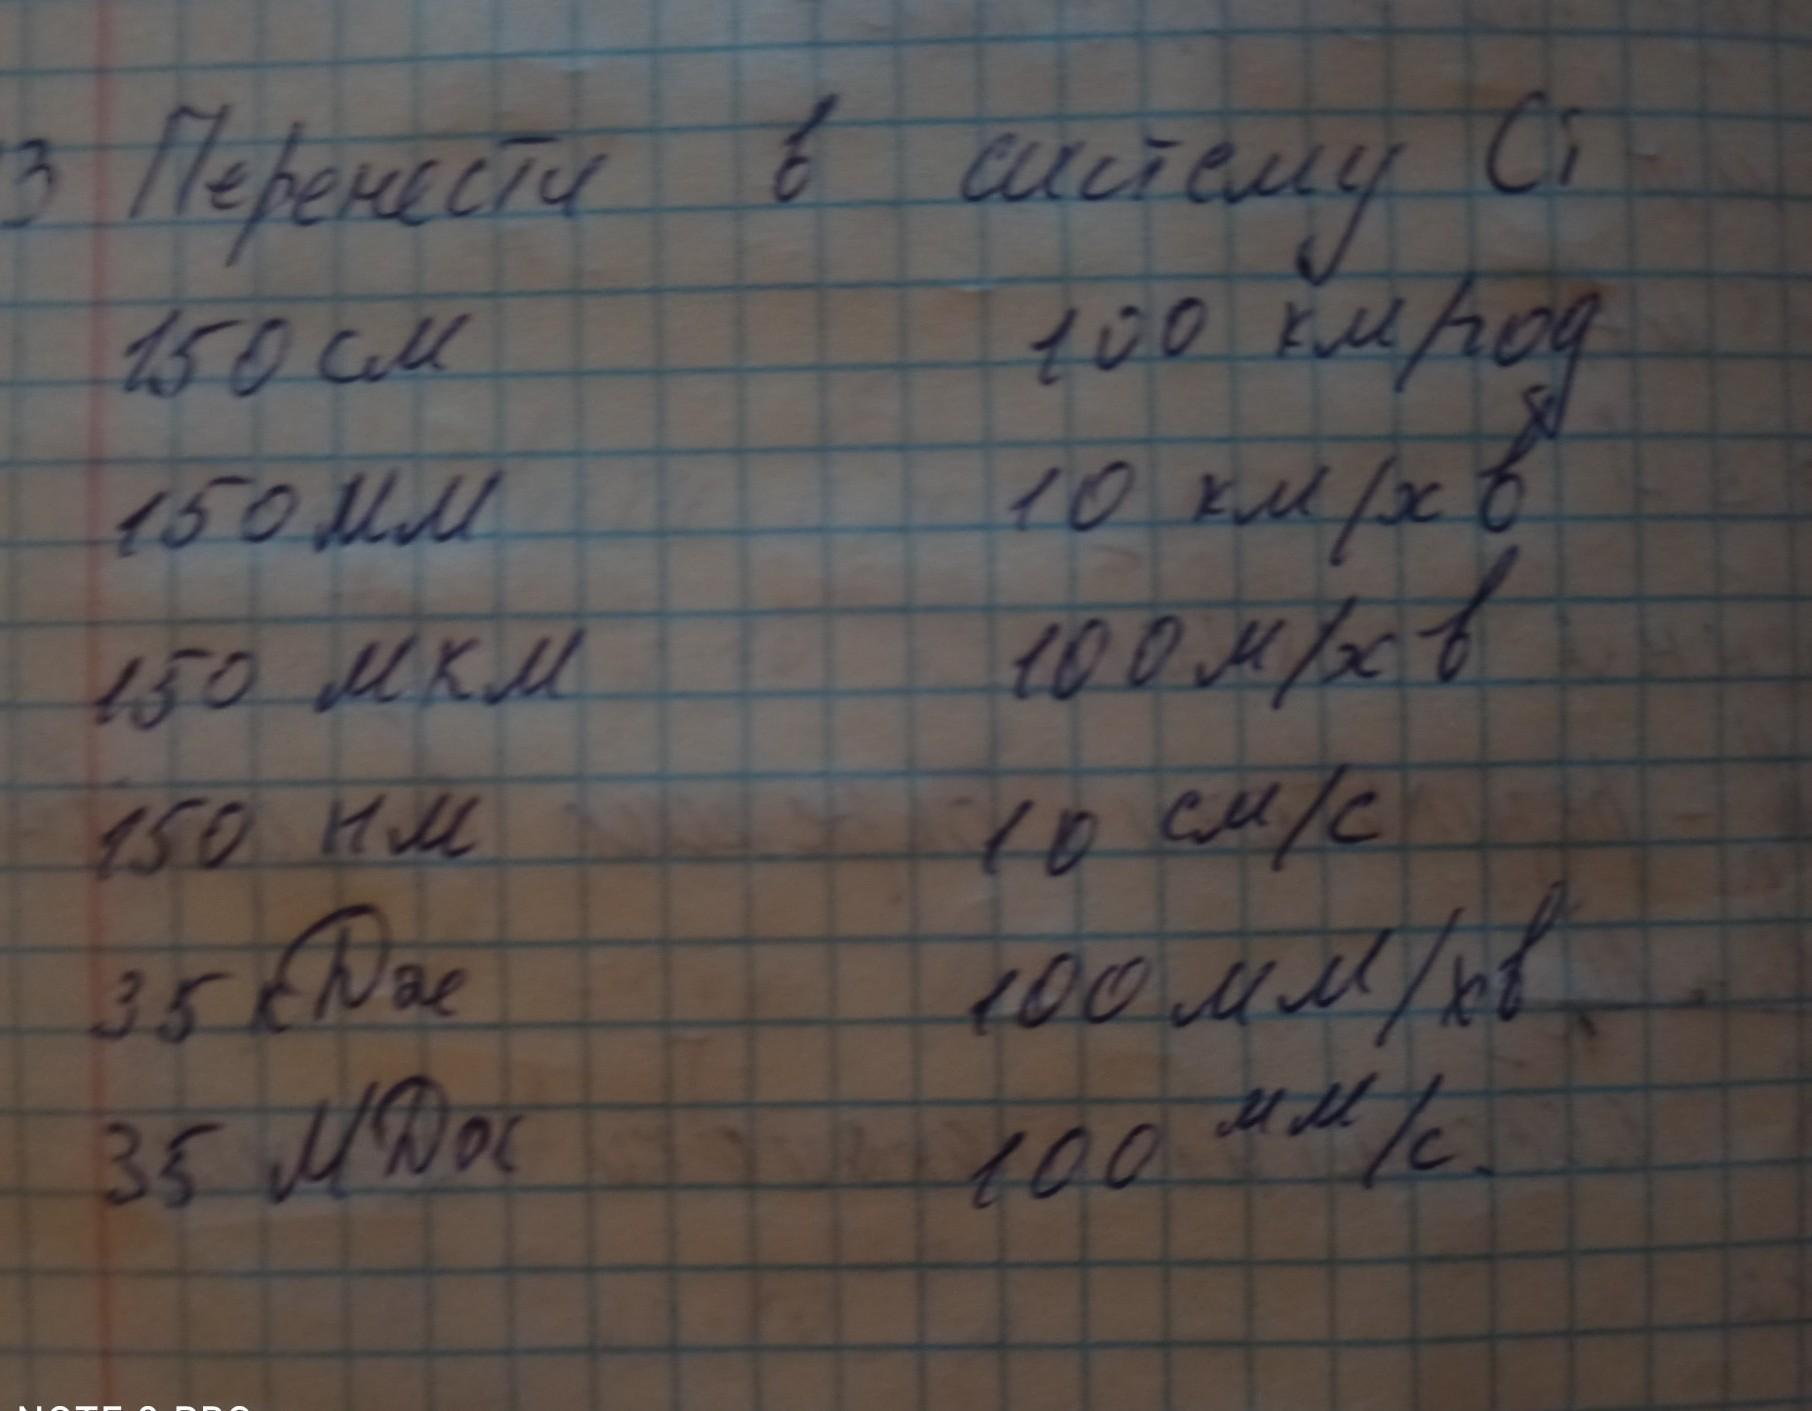 3 Перенести в систему Сі
150 см 100 км/год
150 мм 10 км/хв
150 мкм 100 м/хв
150 нм 10 см/с
35 кДж 100 мм/хв
35 МДж 100 мм/с.